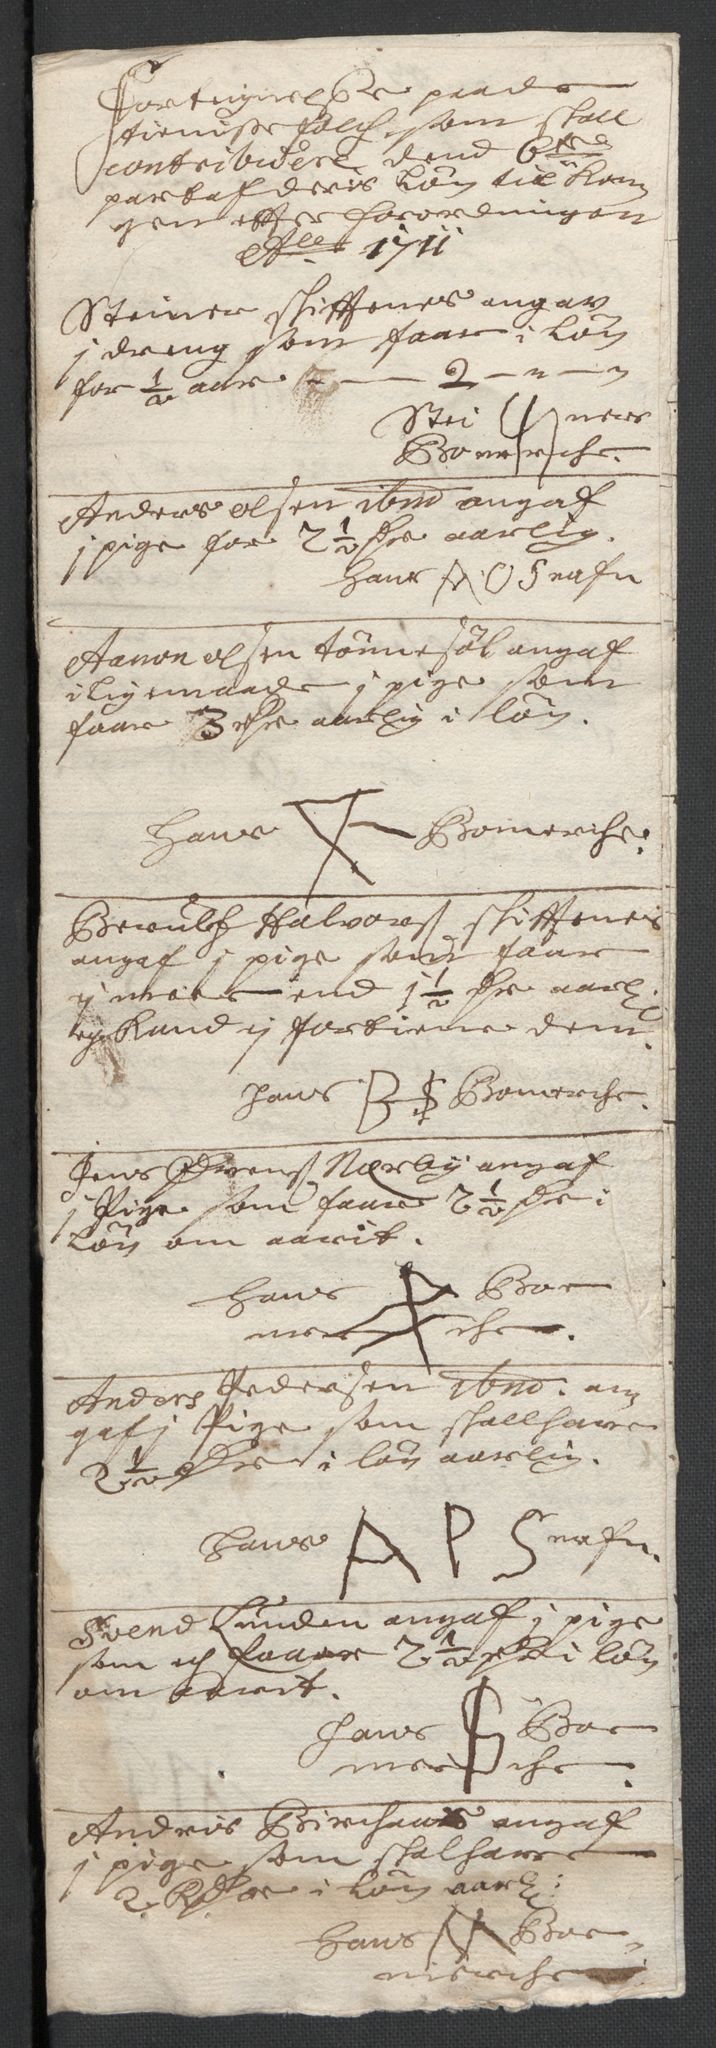 Fortegnelsse paa de
tieniste folch, som skall
contribuere dend 6te
part af deris Løn til Kon
gen effter forordningen
Ao 1711
Steiner skiffenes angav
j dreng som faar i Løn
for ½ aar - - 2 - " - "
Stei ners
Bomerche.
Anders olsen ibnd angaf
j pige for 2½ dr aarlig.
hans A O S nafn
Aanon olsen tönnesöl angaf
i lige maade j pige som
faar 3 dr aarlig i løn.
hans Bomerche.
Berulf Halvorß skiffenes
angaf j pige som faar
ej meer end 1½ dr aarl:
og Kand ej fortiene dem.
hans B S Bomerche.
Jens Nærby angaf
j Pige som faar 2½ dr i
Løn om aarit.
hans Boe
merche.
Anders Pedersen ibnd. an
gaf j Pige som skall have
2½ dr i løn aarlig.
hans A P S nafn.
Svend Lunden angaf j pige
som och faar 2½ dr i løn
om aarit.
hans S Boe
merche.
Andris Birchaas angaf
j pige som skal have
2 Rdr i løn aarl:
hans A Boe
merche